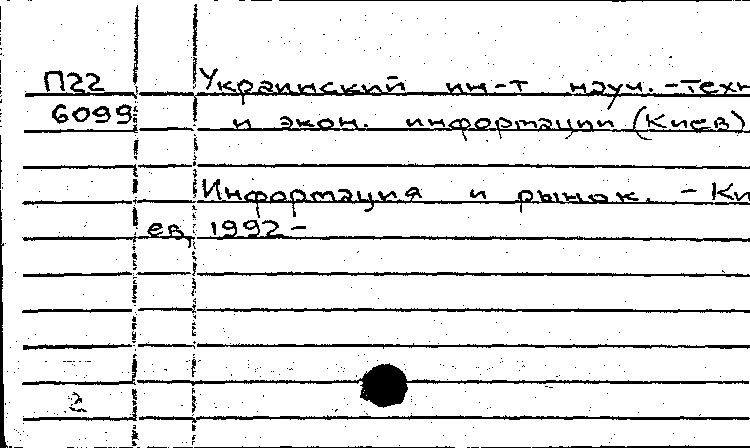 П22 Украинский ин-т науч.-техн
6099 и экон. информации (Киев)
Информация и рынок. - Ки
ев, 1992-
2